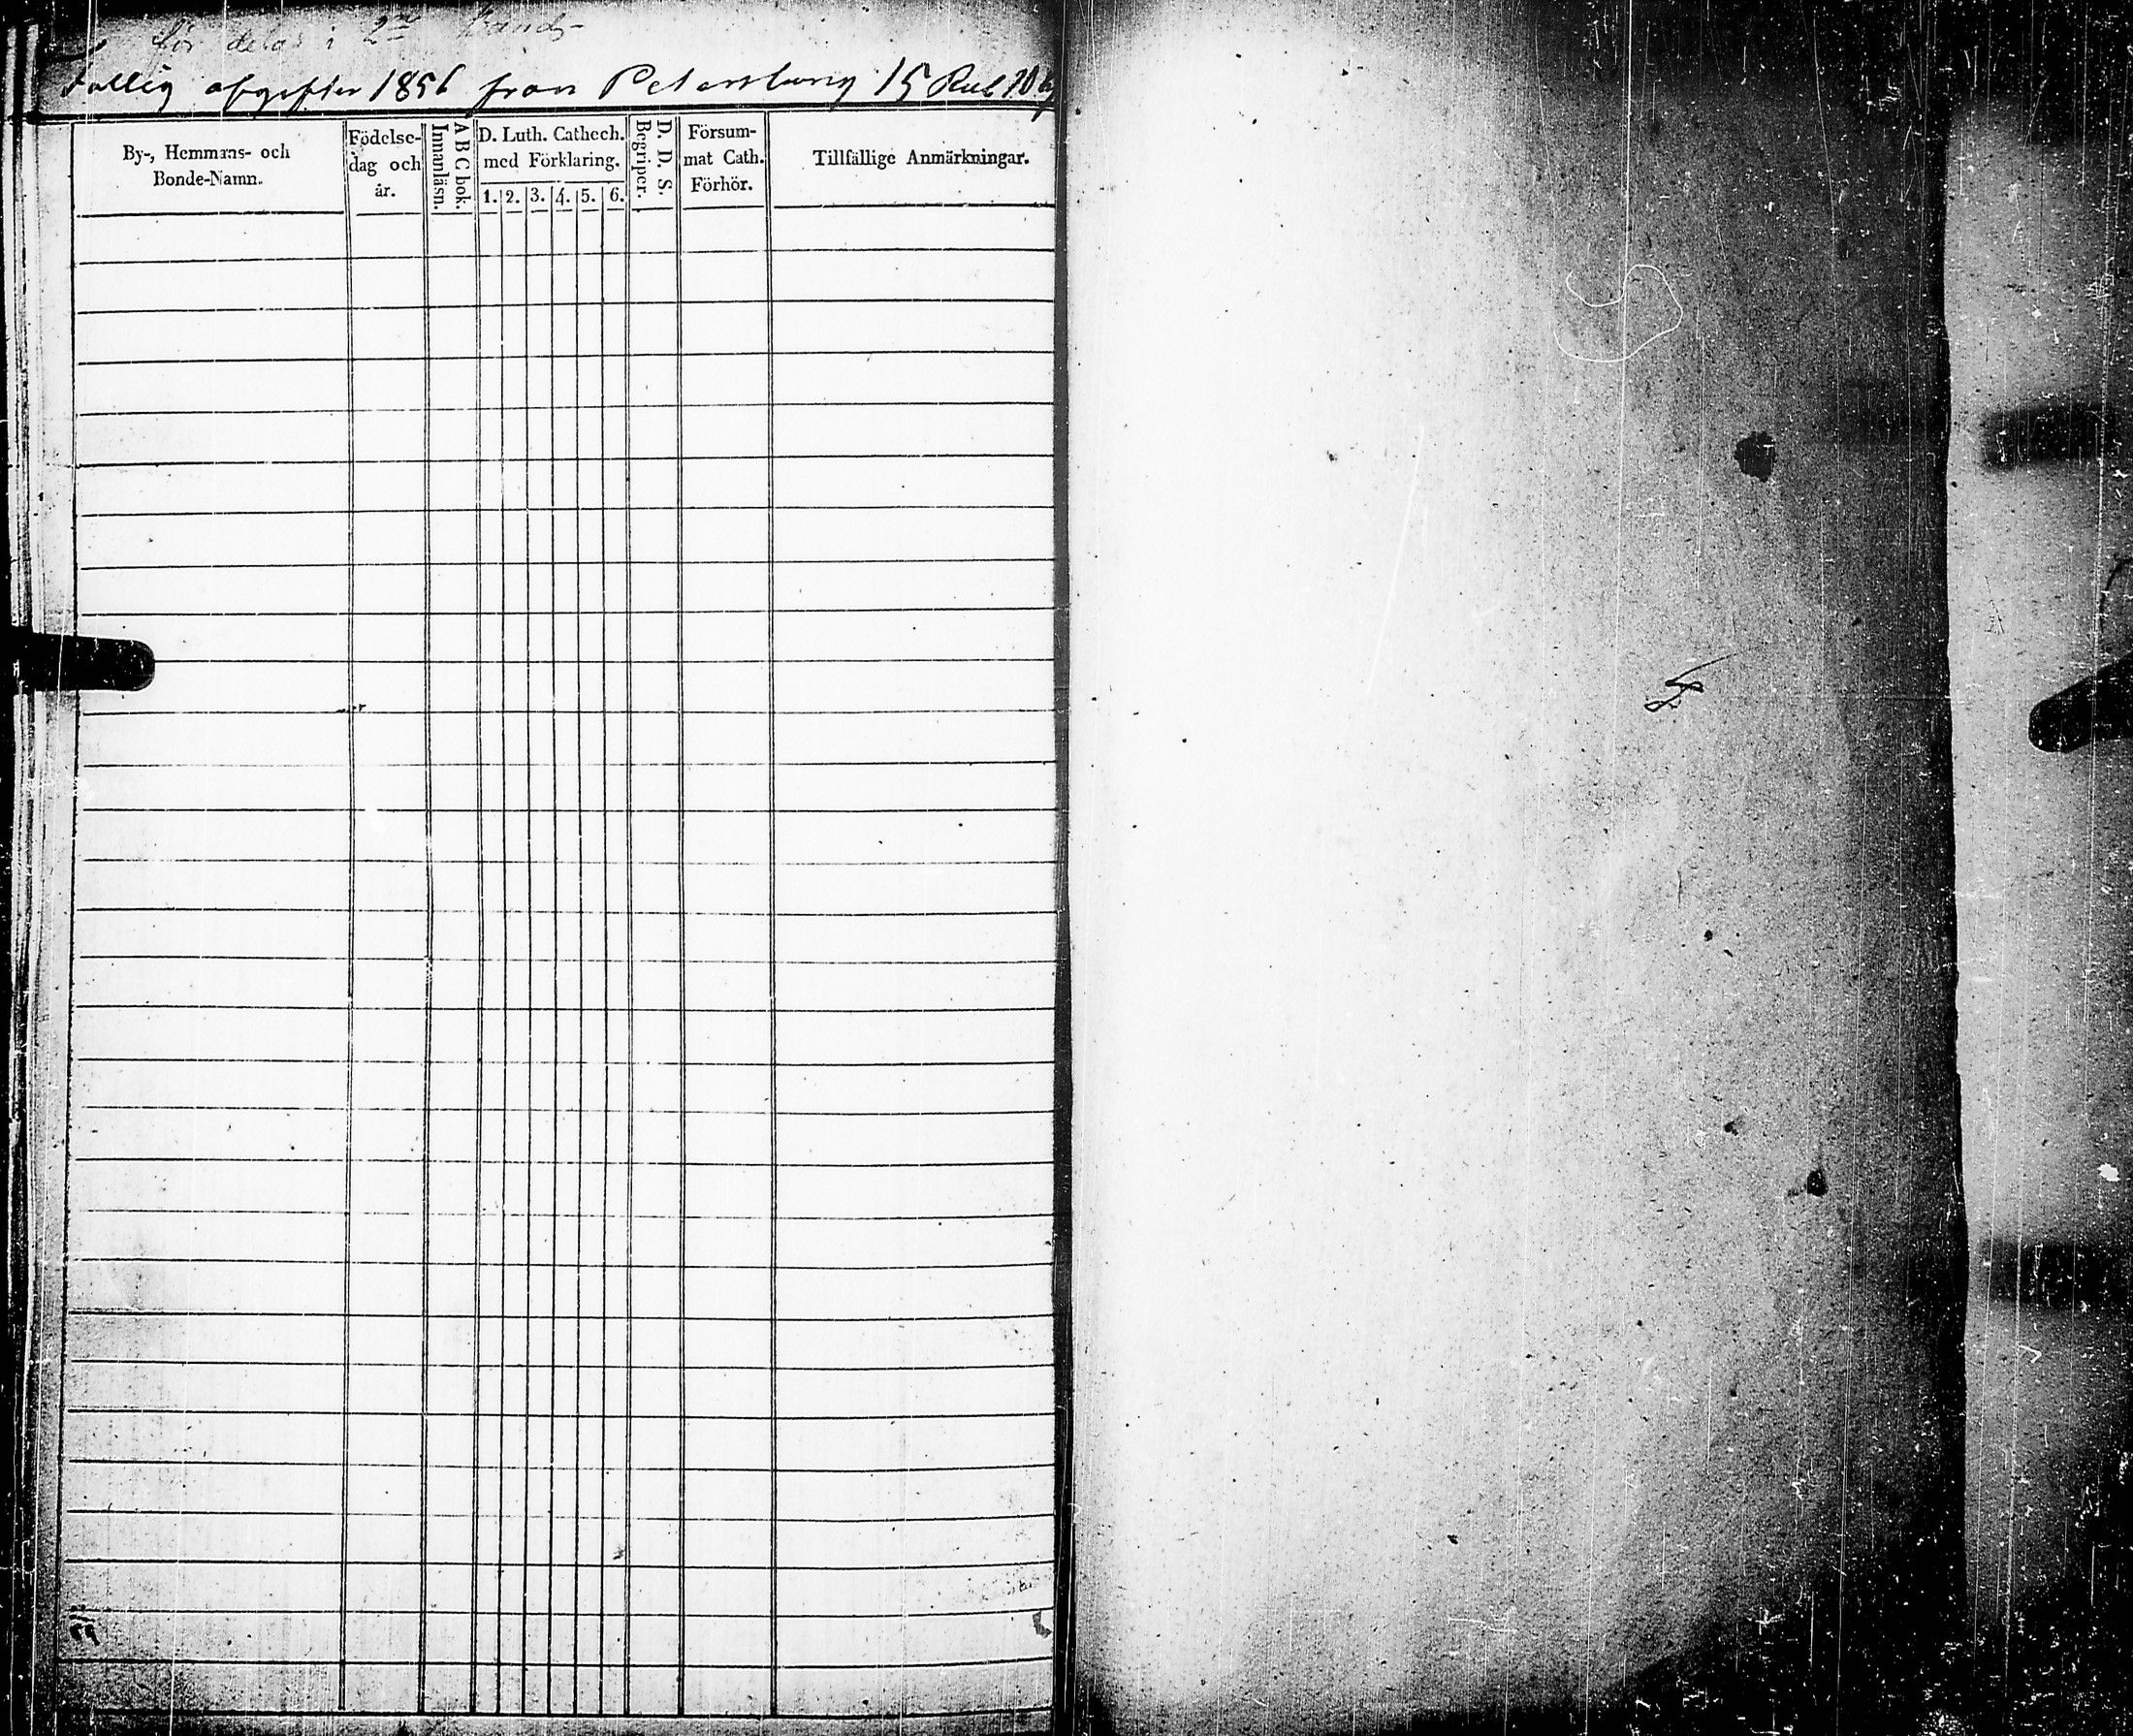 för delas i 2ne band
Fattig afgifter 1856 från Petersburg 15 Rub 10
By-, Hemmans- och
Bonde-Namn.
Födelse-
dag och
år.
A B C bok.
Innanläsn.
D. Luth. Cathech.
med Förklaring.
1. 2. 3. 4. 5. 6.
D. D. S.
Begriper.
Försum-
mat Cath.
Förhör.
Tillfällige Anmärkningar.